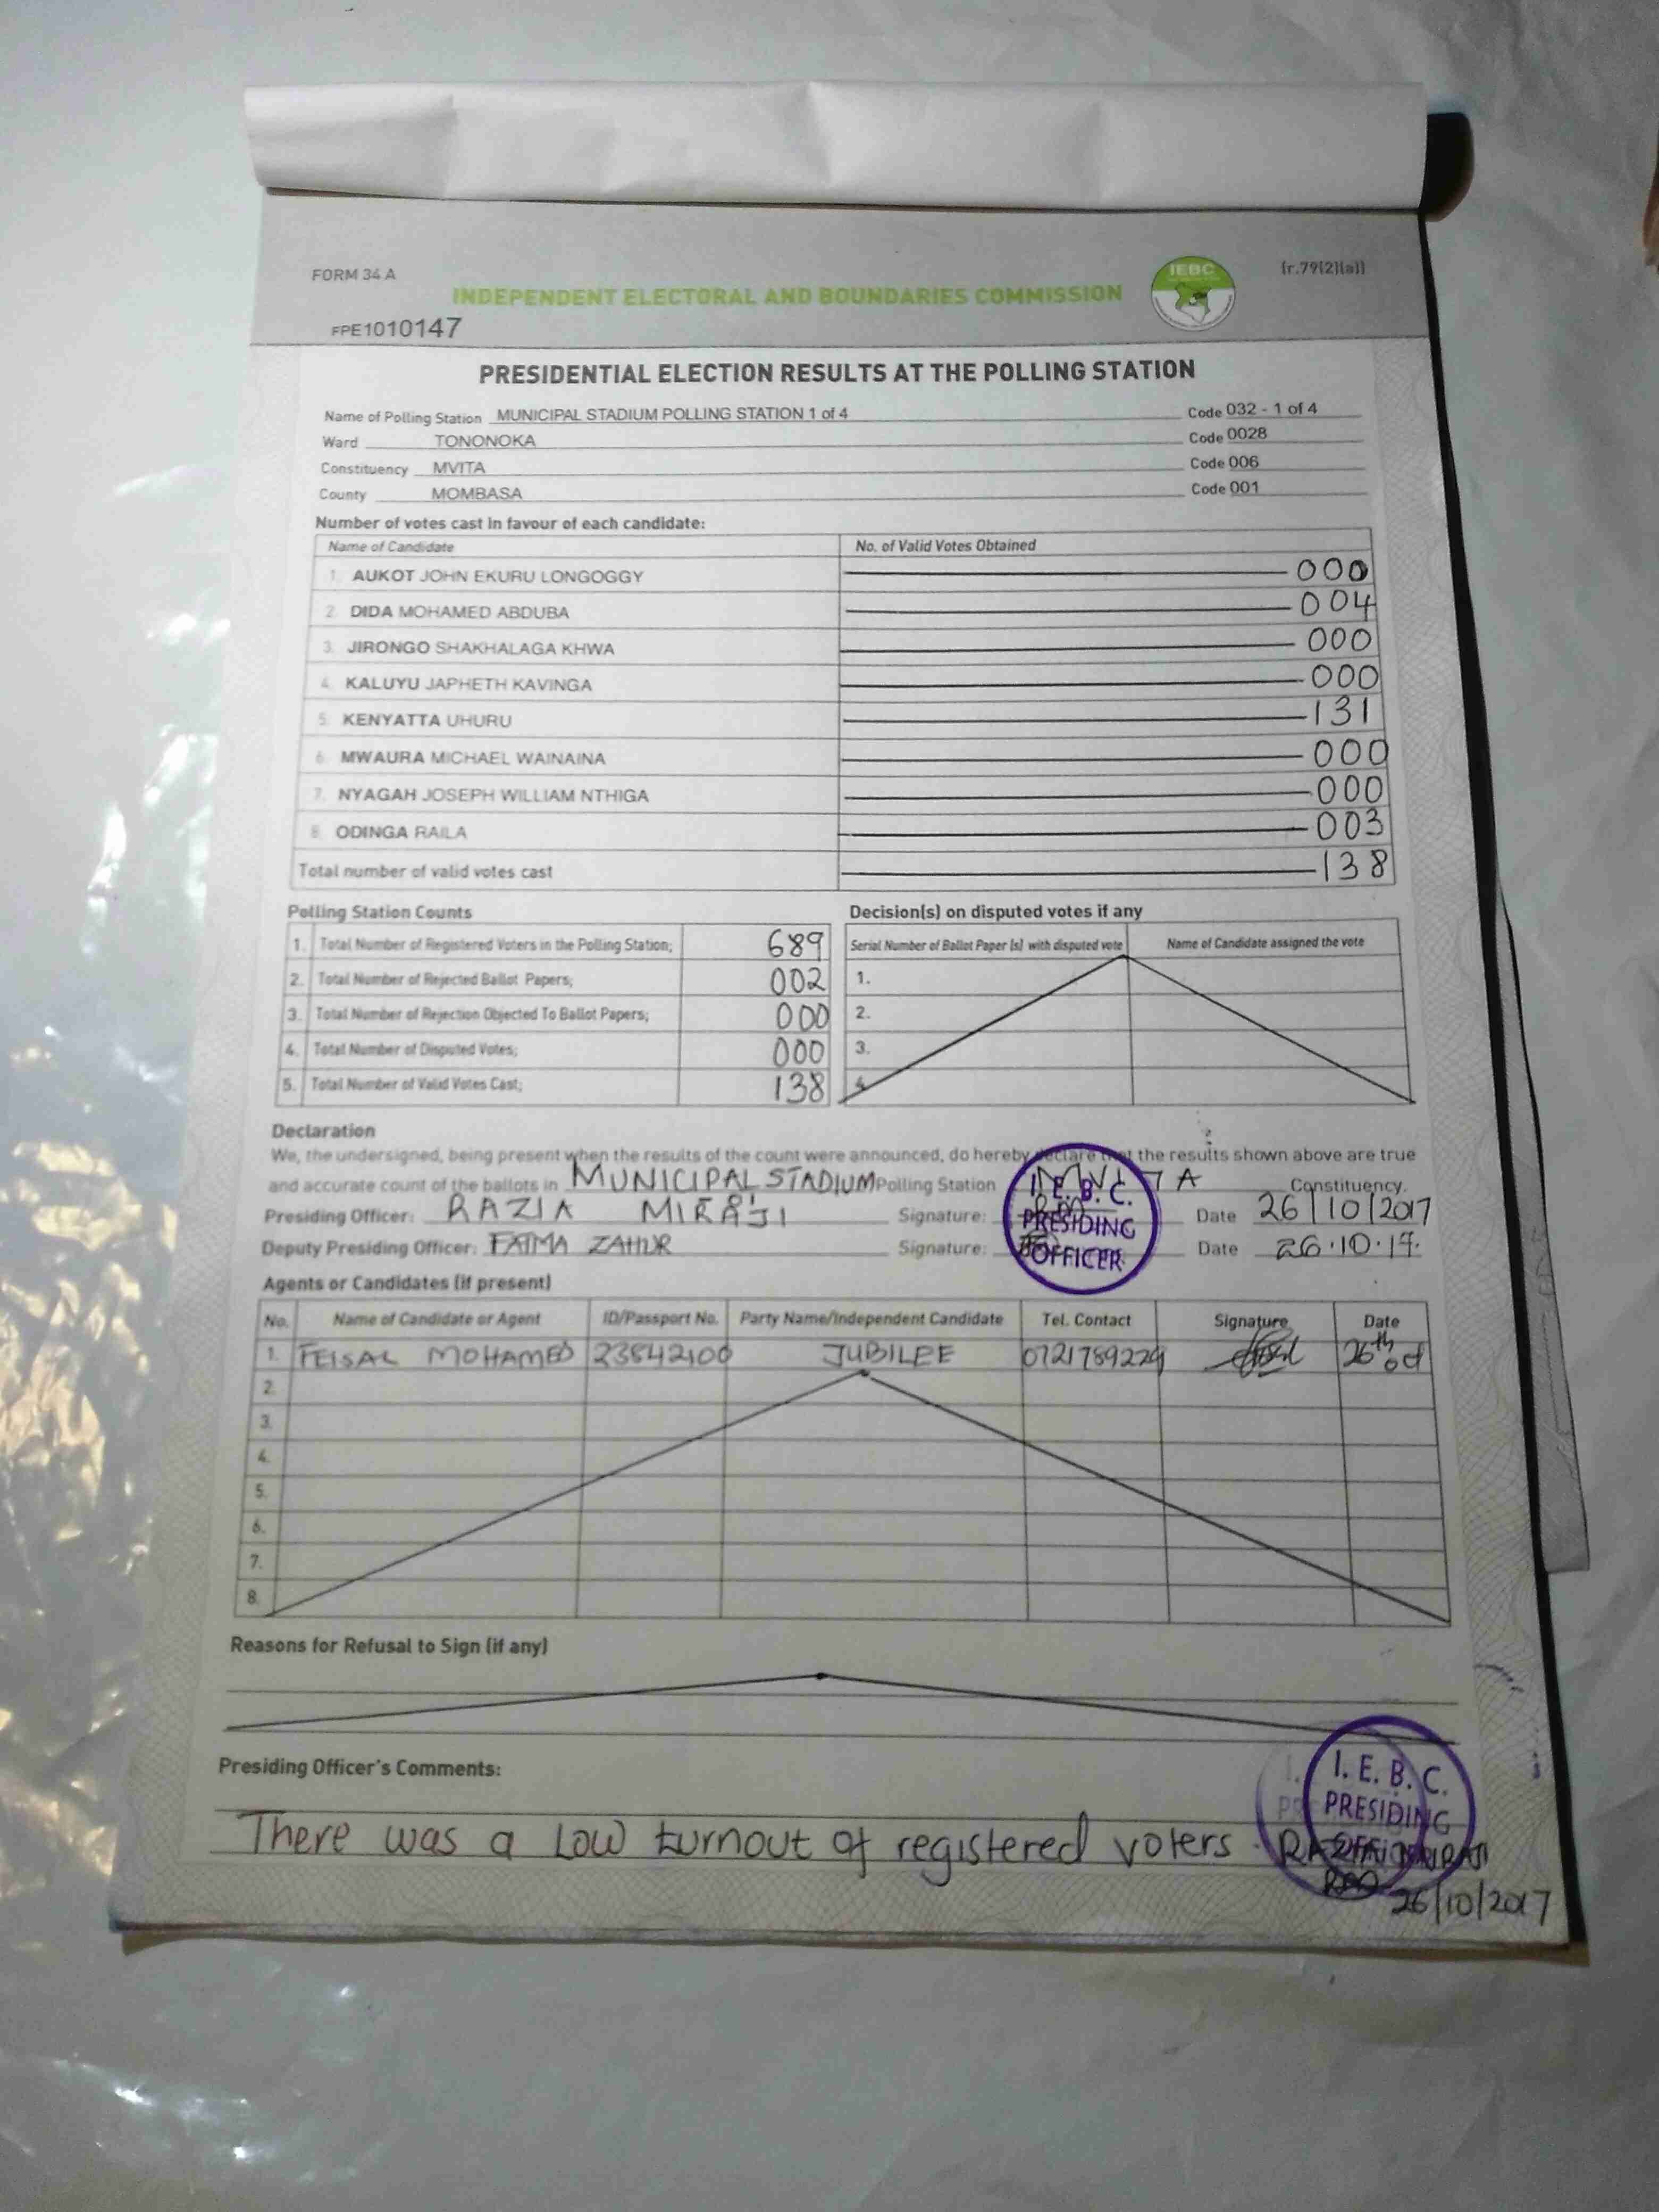 FORM 34 A
IEBC
(r.79(2)(a))
INDEPENDENT ELECTORAL AND BOUNDARIES COMMISSION
FPE1010147
PRESIDENTIAL ELECTION RESULTS AT THE POLLING STATION
Name of Polling Station MUNICIPAL STADIUM POLLING STATION 1 of 4 Code 032 - 1 of 4
Ward TONONOKA Code 0028
Constituency MVITA Code 006
County MOMBASA Code 001
Number of votes cast in favour of each candidate:
Name of Candidate No. of Valid Votes Obtained
1. AUKOT JOHN EKURU LONGOGGY 000
2. DIDA MOHAMED ABDUBA 004
3. JIRONGO SHAKHALAGA KHWA 000
4. KALUYU JAPHETH KAVINGA 000
5. KENYATTA UHURU 131
6. MWAURA MICHAEL WAINAINA 000
7. NYAGAH JOSEPH WILLIAM NTHIGA 000
8. ODINGA RAILA 003
Total number of valid votes cast 138
Polling Station Counts
1. Total Number of Registered Voters in the Polling Station; 689
2. Total Number of Rejected Ballot Papers; 002
3. Total Number of Rejection Objected To Ballot Papers; 000
4. Total Number of Disputed Votes; 000
5. Total Number of Valid Votes Cast; 138
Decision(s) on disputed votes if any
Serial Number of Ballot Paper (s) with disputed vote Name of Candidate assigned the vote
1.
2.
3.
4.
Declaration
We, the undersigned, being present when the results of the count were announced, do hereby declare that the results shown above are true
and accurate count of the ballots in MUNICIPAL STADIUM Polling Station MVITA Constituency.
Presiding Officer: RAZIA MIRAJI Signature: Date 26/10/2017
Deputy Presiding Officer: FATMA ZAHUR Signature: Date 26.10.17.
I. E. B. C.
PRESIDING
OFFICER
Agents or Candidates (if present)
No. Name of Candidate or Agent ID/Passport No. Party Name/Independent Candidate Tel. Contact Signature Date
1. FEISAL MOHAMED 23842100 JUBILEE 0721789229 26th oct
2.
3.
4.
5.
6.
7.
8.
Reasons for Refusal to Sign (if any)
Presiding Officer's Comments:
There was a Low turnout of registered voters. RAZIA MIRAJI
26/10/2017
I. E. B. C.
PRESIDING
OFFICER